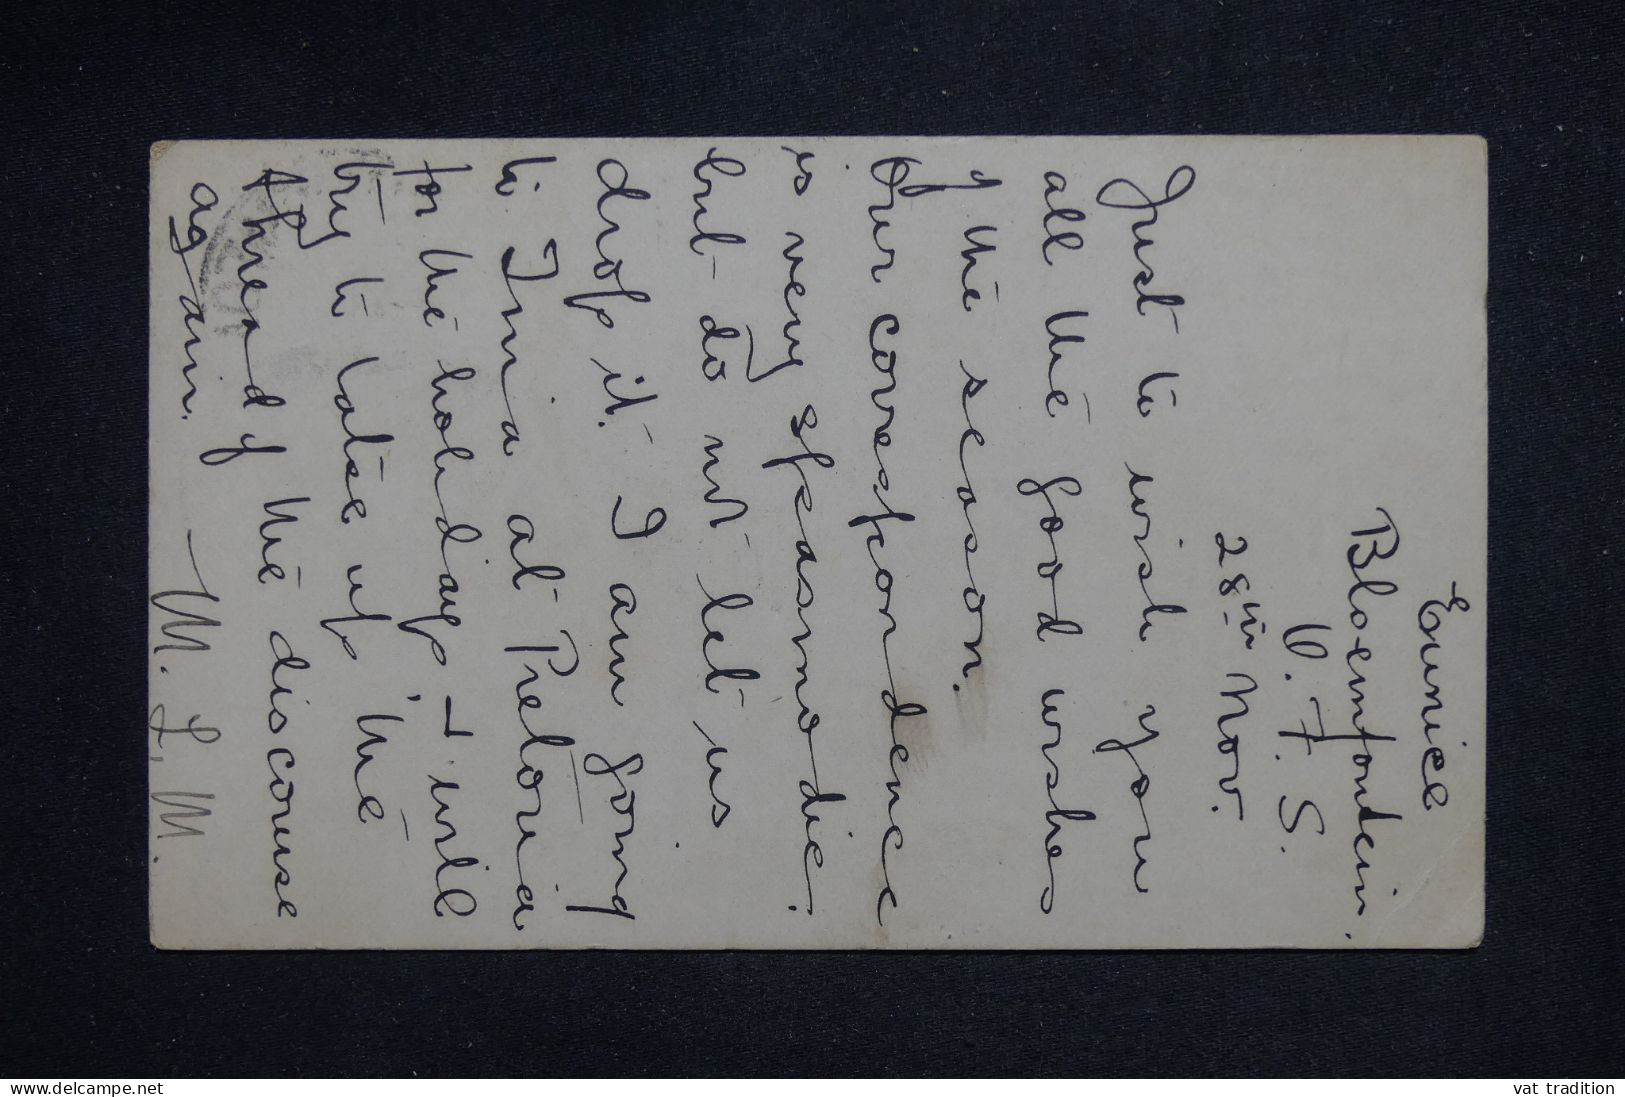 Eunice
Bloemfontein.
O. F. S.
28th Nov.
Just to wish you
all the good wishes
of the season.
Our correspondence
is very spasmodic.
but do not let us
drop it. I am going
to Irma at Pretoria
for the holidays, & will
try to take up, the
thread of the discourse
again. M. L. M.
delcampe.net
vat tradition